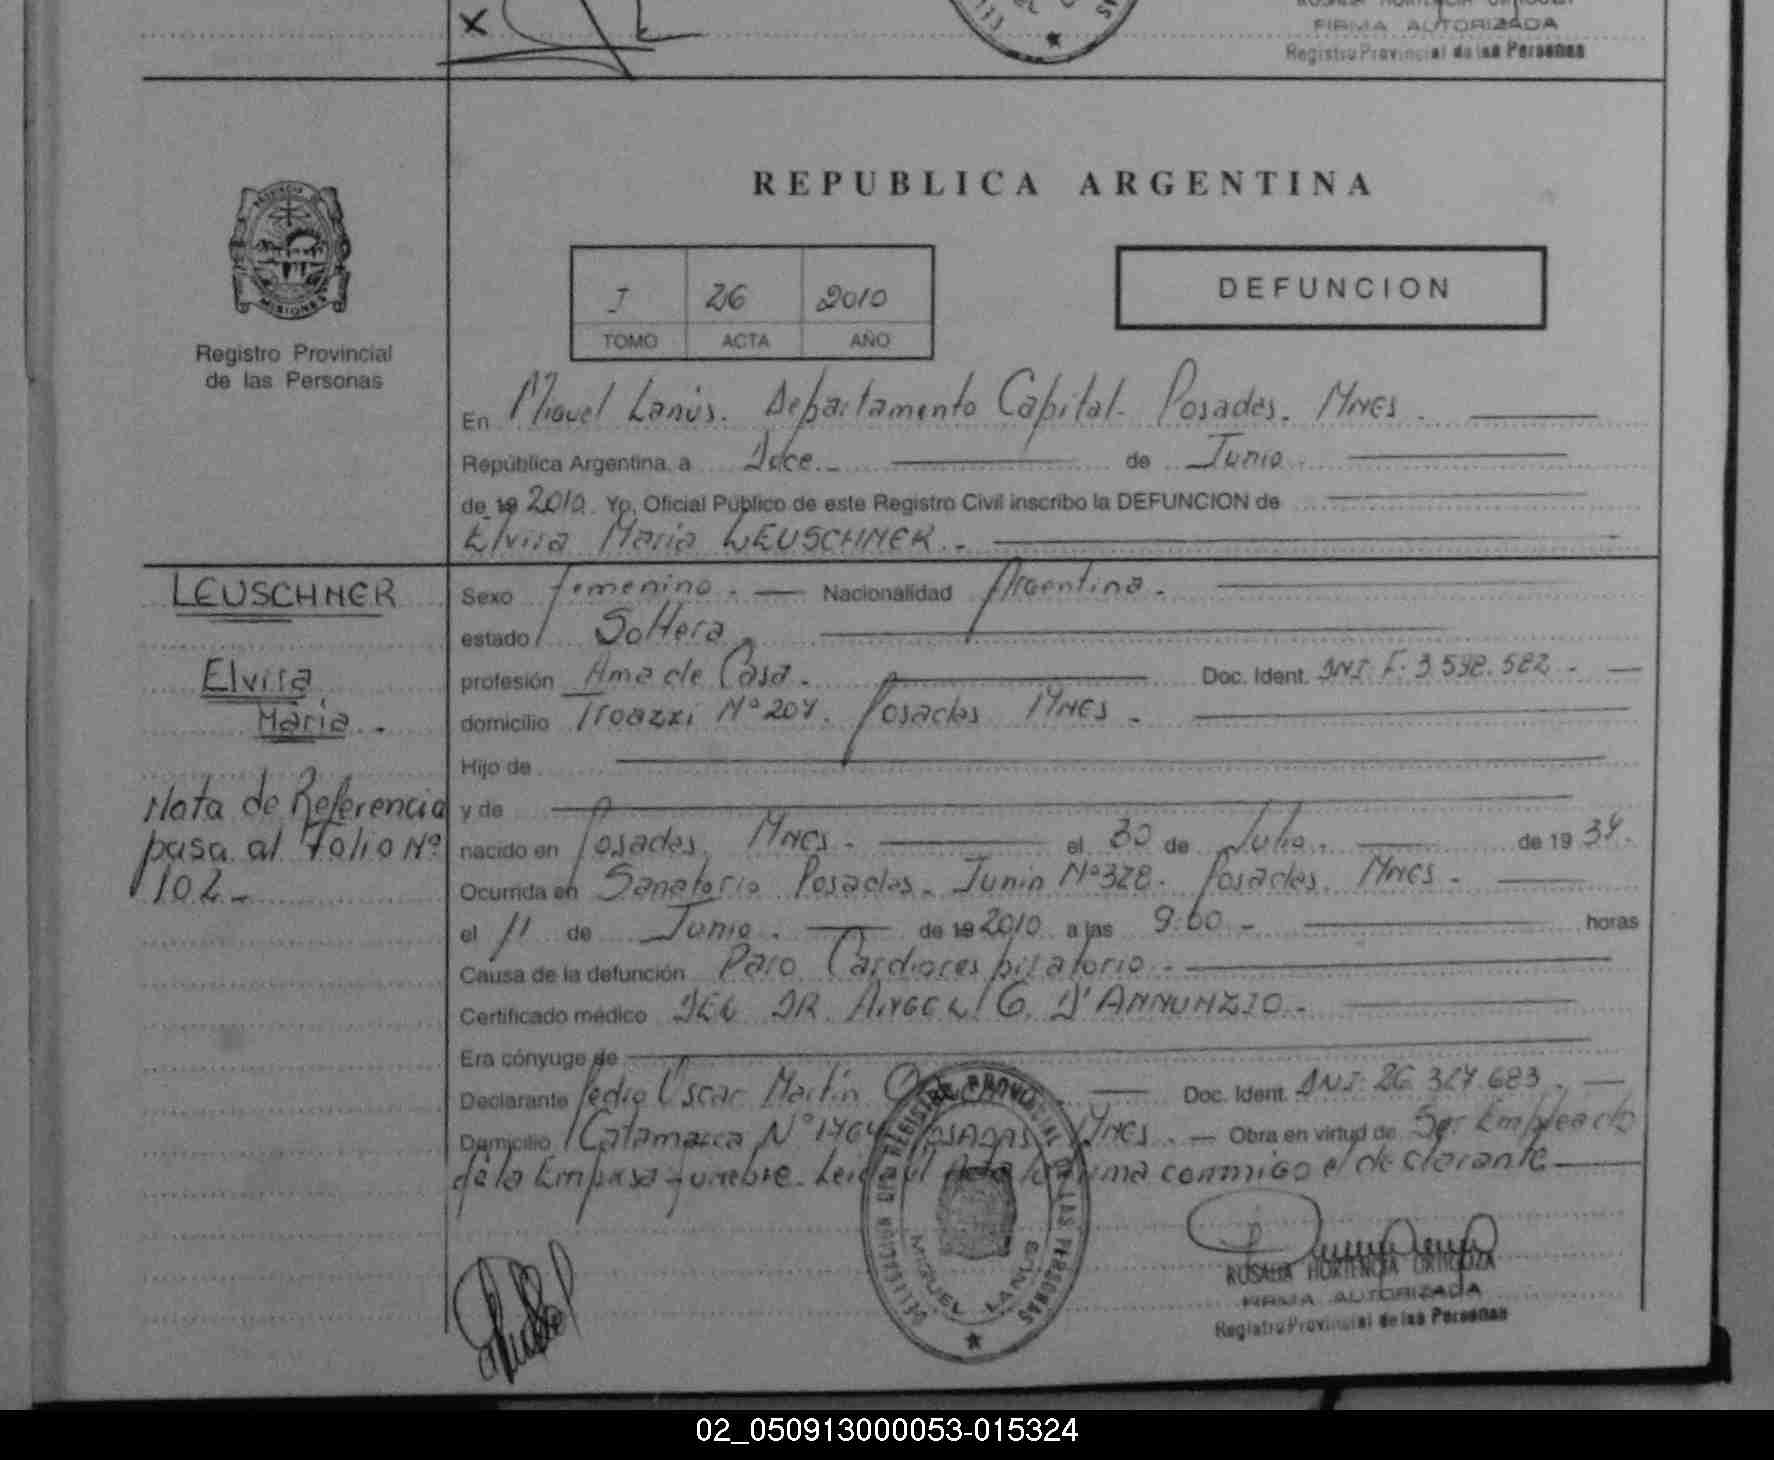 X
FIRMA AUTORIZADA
Registro Provincial de las Personas
REPUBLICA ARGENTINA
PROVINCIA DE MISIONES
Registro Provincial
de las Personas
I 26 2010
TOMO ACTA AÑO
DEFUNCION
En Miguel Lanús. Departamento Capital. Posadas. Mnes.
República Argentina, a Doce.- de Junio.
de 19 2010. Yo, Oficial Público de este Registro Civil inscribo la DEFUNCION de
Elvira Maria LEUSCHNER.-
LEUSCHNER
Elvira
Maria.-
Nota de Referencia
pasa al Folio Nº
102-
Sexo femenino.- Nacionalidad Argentina.
estado Soltera
profesión Ama de Casa. Doc. Ident. DNI F. 3.592.582.-
domicilio Nº 204. Posadas Mnes.-
Hijo de
y de
nacido en Posadas. Mnes.- el 30 de Julio. de 19 34.
Ocurrida en Sanatorio Posadas. Junin Nº 328. Posadas. Mnes.-
el 11 de Junio.- de 19 2010 a las 9:00- horas
Causa de la defunción Paro Cardiorespiratorio.-
Certificado médico DEL DR. ANGEL G. D'ANNUNZIO.-
Era cónyuge de
Declarante Pedro Oscar Martín Doc. Ident. DNI: 26.327.683.-
Domicilio Catamarca Nº POSADAS Mnes.- Obra en virtud de Ser Empleado
de la Empresa fúnebre. Leída el Acta la firma conmigo el declarante
DELEGACION DEL REGISTRO PROVINCIAL DE LAS PERSONAS
MIGUEL LANUS
ROSALIA HORTENCIA URTIGOZA
FIRMA AUTORIZADA
Registro Provincial de las Personas
02_050913000053-015324